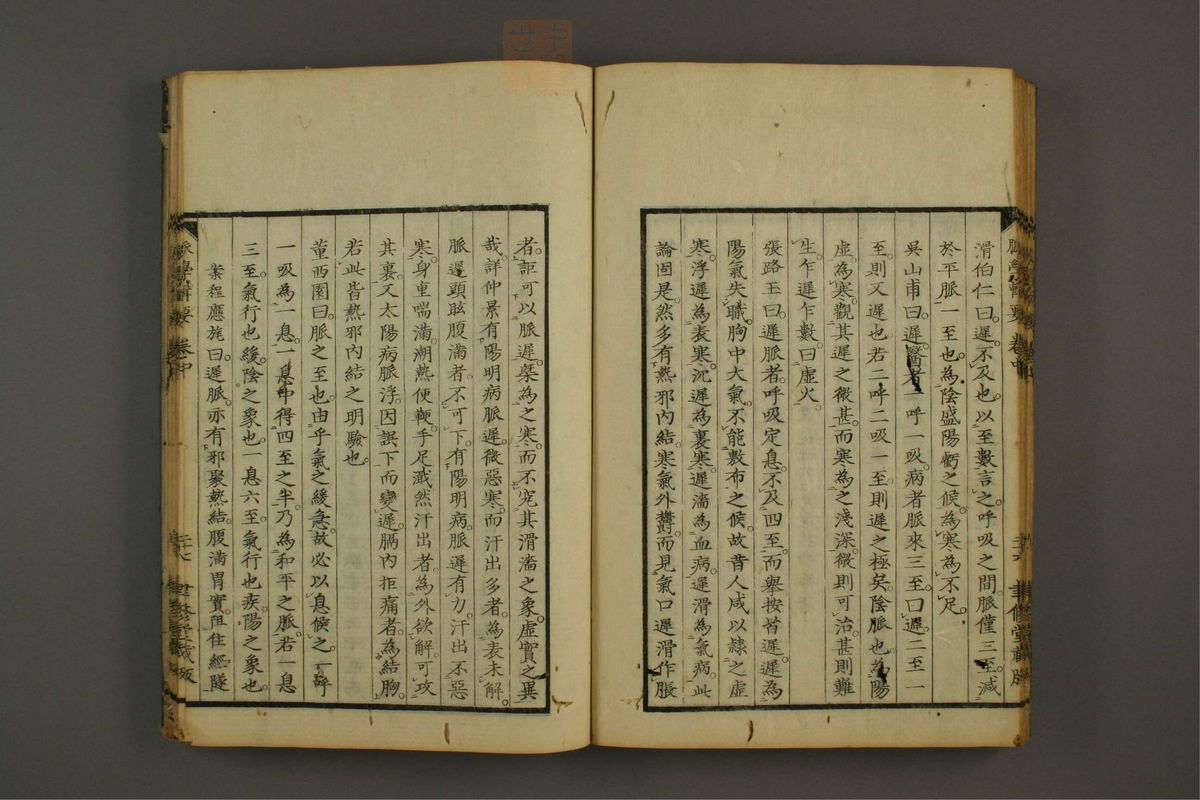 滑伯仁曰。遲。不及也。以至數言之。呼吸之間。脈僅三至。減
於平脈一至也。為陰盛陽虧之候。為寒。為不足。
吳山甫曰。遲。醫者一呼一吸。病者脈來三至。曰遲。二至一
至。則又遲也。若二呼二吸一至。則遲之極矣。陰脈也。為陽
虛。為寒。觀其遲之微甚。而寒為之淺深。微則可治。甚則難
生。乍遲乍數。曰虛火。
張路玉曰。遲脈者。呼吸定息。不及四至。而舉按皆遲。遲為
陽氣失職。胸中大氣。不能敷布之候。故昔人咸以隸之虛
寒。浮遲為表寒。沉遲為裏寒。遲濇為血病。遲滑為氣病。此
論固是。然多有熱邪內結。寒氣外鬱。而見氣口遲滑作脹
者。詎可以脈遲。槩為之寒。而不究其滑濇之象。虛實之異
哉。詳仲景有陽明病脈遲。微惡寒。而汗出多者。為表未解。
脈遲頭眩腹滿者。不可下。有陽明病。脈遲有力。汗出不惡
寒。身重喘滿。潮熱便鞕。手足濈然汗出者。為外欲解。可攻
其裏。又太陽病脈浮。因誤下而變遲。膈內拒痛者。為結胸。
若此皆熱邪內結之明驗也。
董西園曰。脈之至也。由乎氣之緩急。故必以息候之。一呼
一吸為一息。一息中得四至之半。乃為和平之脈。若一息
三至。氣行也緩。陰之象也。一息六至。氣行也疾。陽之象也。
案程應旄曰。遲脈。亦有邪聚熱結。腹滿胃實。阻住經隧
脈學輯要 卷中
聿修堂藏版